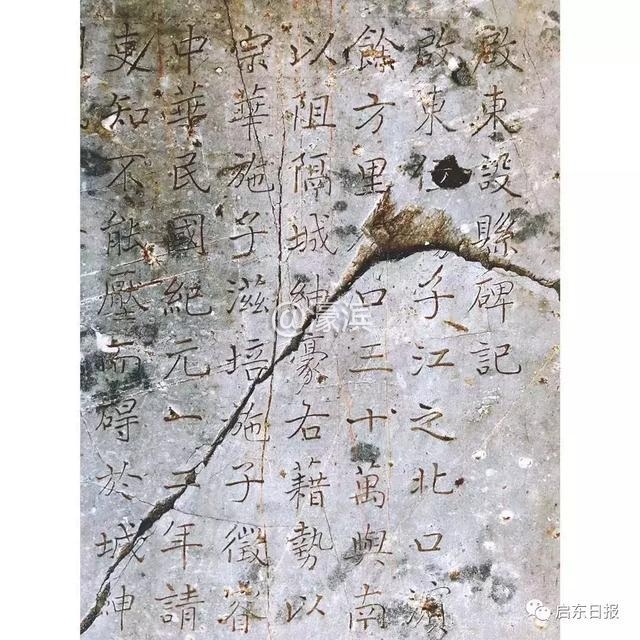 啟東設縣碑記
啟東位揚子江之北口濱
餘方里口三十萬與南
以阻隔城紳豪右藉勢以
宗華施子滋培施子徵睿
中華民國紀元一二年請
吏知不能壓而碍於城紳
@濠滨
启东日报